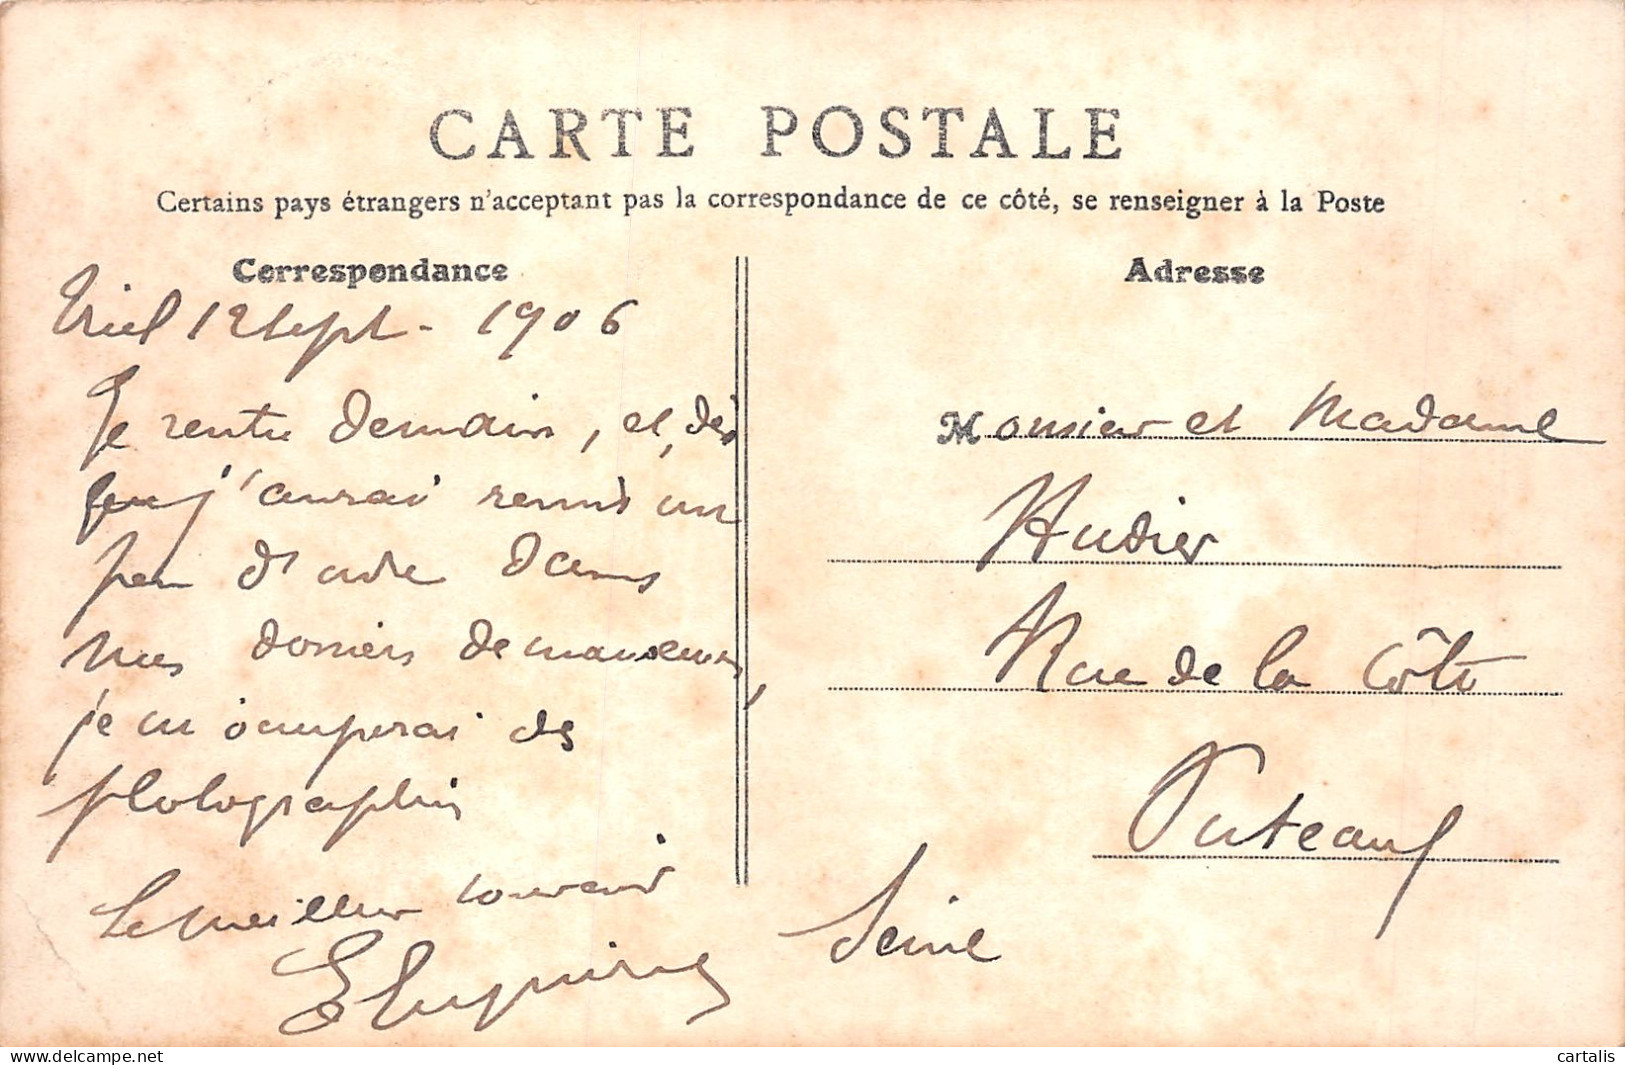 CARTE POSTALE
Certains pays étrangers n'acceptant pas la correspondance de ce côté, se renseigner à la Poste
Correspondance
Adresse
Triel 12 sept - 1906
Je rentre demain, et, dès
que j'aurai remis un
peu d'ordre dans
mes dossiers de manoeuvres,
je m'occuperai des
photographies
Le meilleur souvenir
Monsieur et Madame
Hudier
Rue de la Côte
Puteaux
Seine
delcampe.net
cartalis